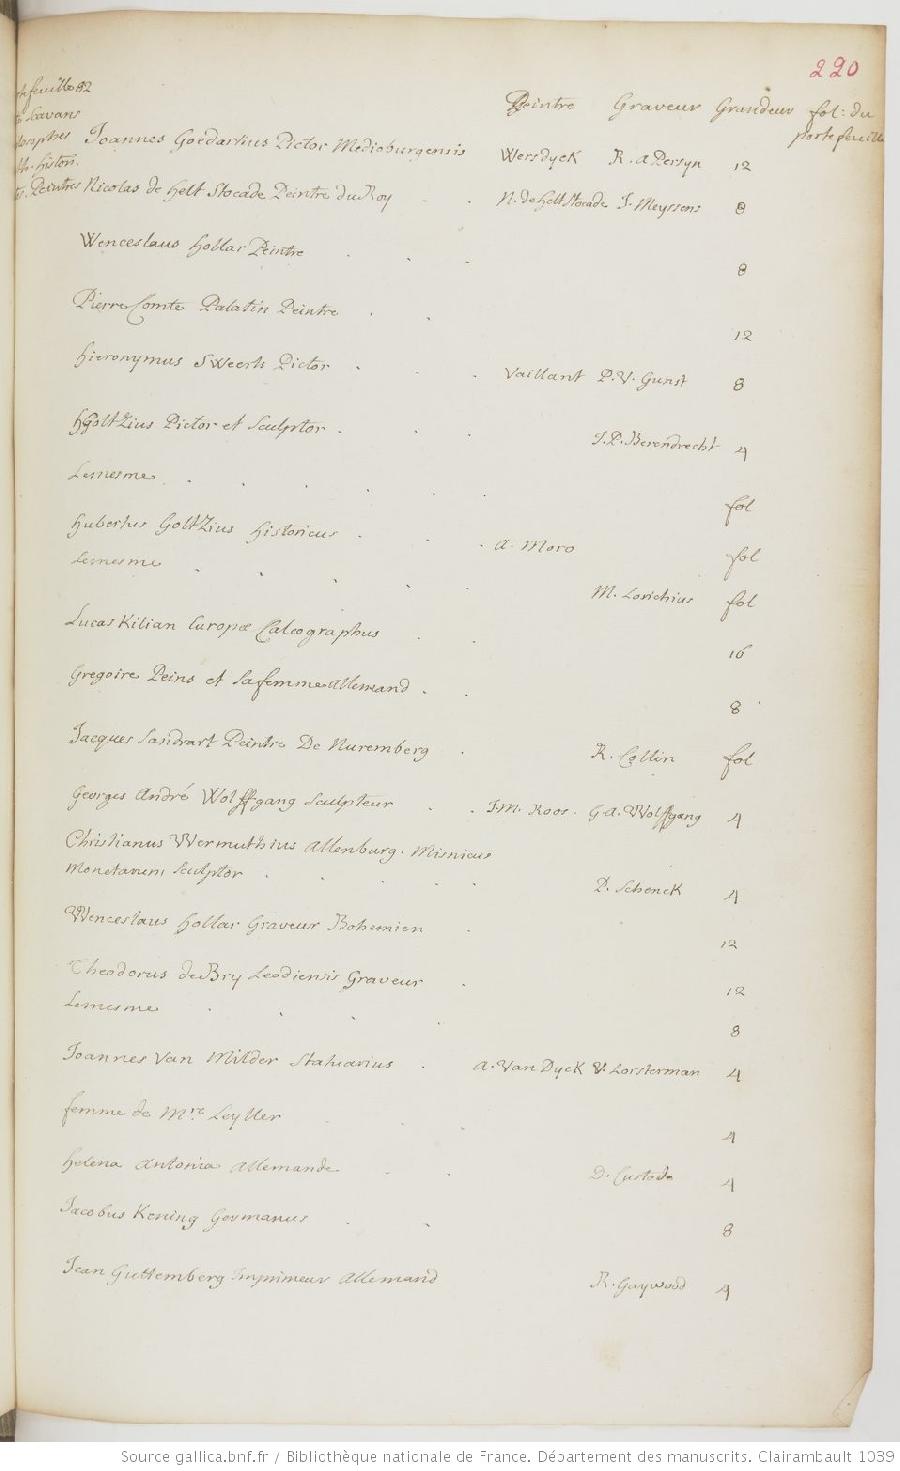 220
feuille 92
Savans
Peintre Graveur Grandeur fol: du
portefeuille
Joannes Goedartius Pictor Medioburgensis Wersdyck R. a Persyn 12
histori.
Peintres Nicolas de helt Stocade Peintre du Roy N. de helt Stocade J. Meyssens 8
Wenceslaus hollar Peintre 8
Pierre Comte Palatin Peintre 12
hieronymus Sweerts Pictor Vaillant P. V. Gunst 8
hgoltzius Pictor et Sculptor J. P. Berendrecht 4
Lemesme fol
hubertus Goltzius historicus A. Moro fol
Lemesme M. Lorichius fol
Lucas Kilian Europæ Calcographus 16
Gregoire Peins et sa femme allemand 8
Jacques Sandrart Peintre De Nuremberg R. Collin fol
Georges André Wolffgang Sculpteur J. M. Roos. G A. Wolffgang 4
Christianus Wermuthius Altenburg. Misnicus
Monetarum Sculptor P. Schenck 4
Wenceslaus hollar Graveur Bohemien 12
Theodorus de Bry Leodiensis Graveur 12
Lemesme 8
Joannes Van Milder Statuarius A. Van Dyck V. Lorsterman 4
femme de Mre Leyller 4
helena Antonia allemande D. Custode 4
Jacobus Kening Germanus 8
Jean Guttemberg Imprimeur allemand R. Gaywood 4
Source gallica.bnf.fr / Bibliothèque nationale de France. Département des manuscrits. Clairambault 1039